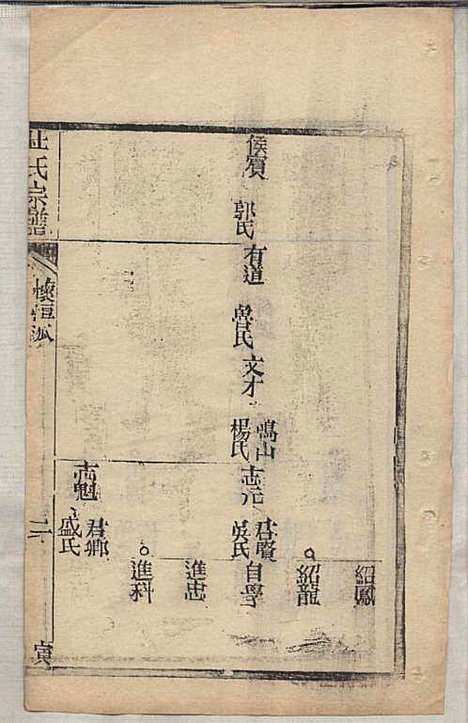 杜氏宗譜
懷恒派
二
寅
侯賓
郭氏
有道
魯氏
文才
鳴山
楊氏
志元
君賡
吳氏
志魁
君卿
盛氏
紹鳳
紹龍
自學
進忠
進科